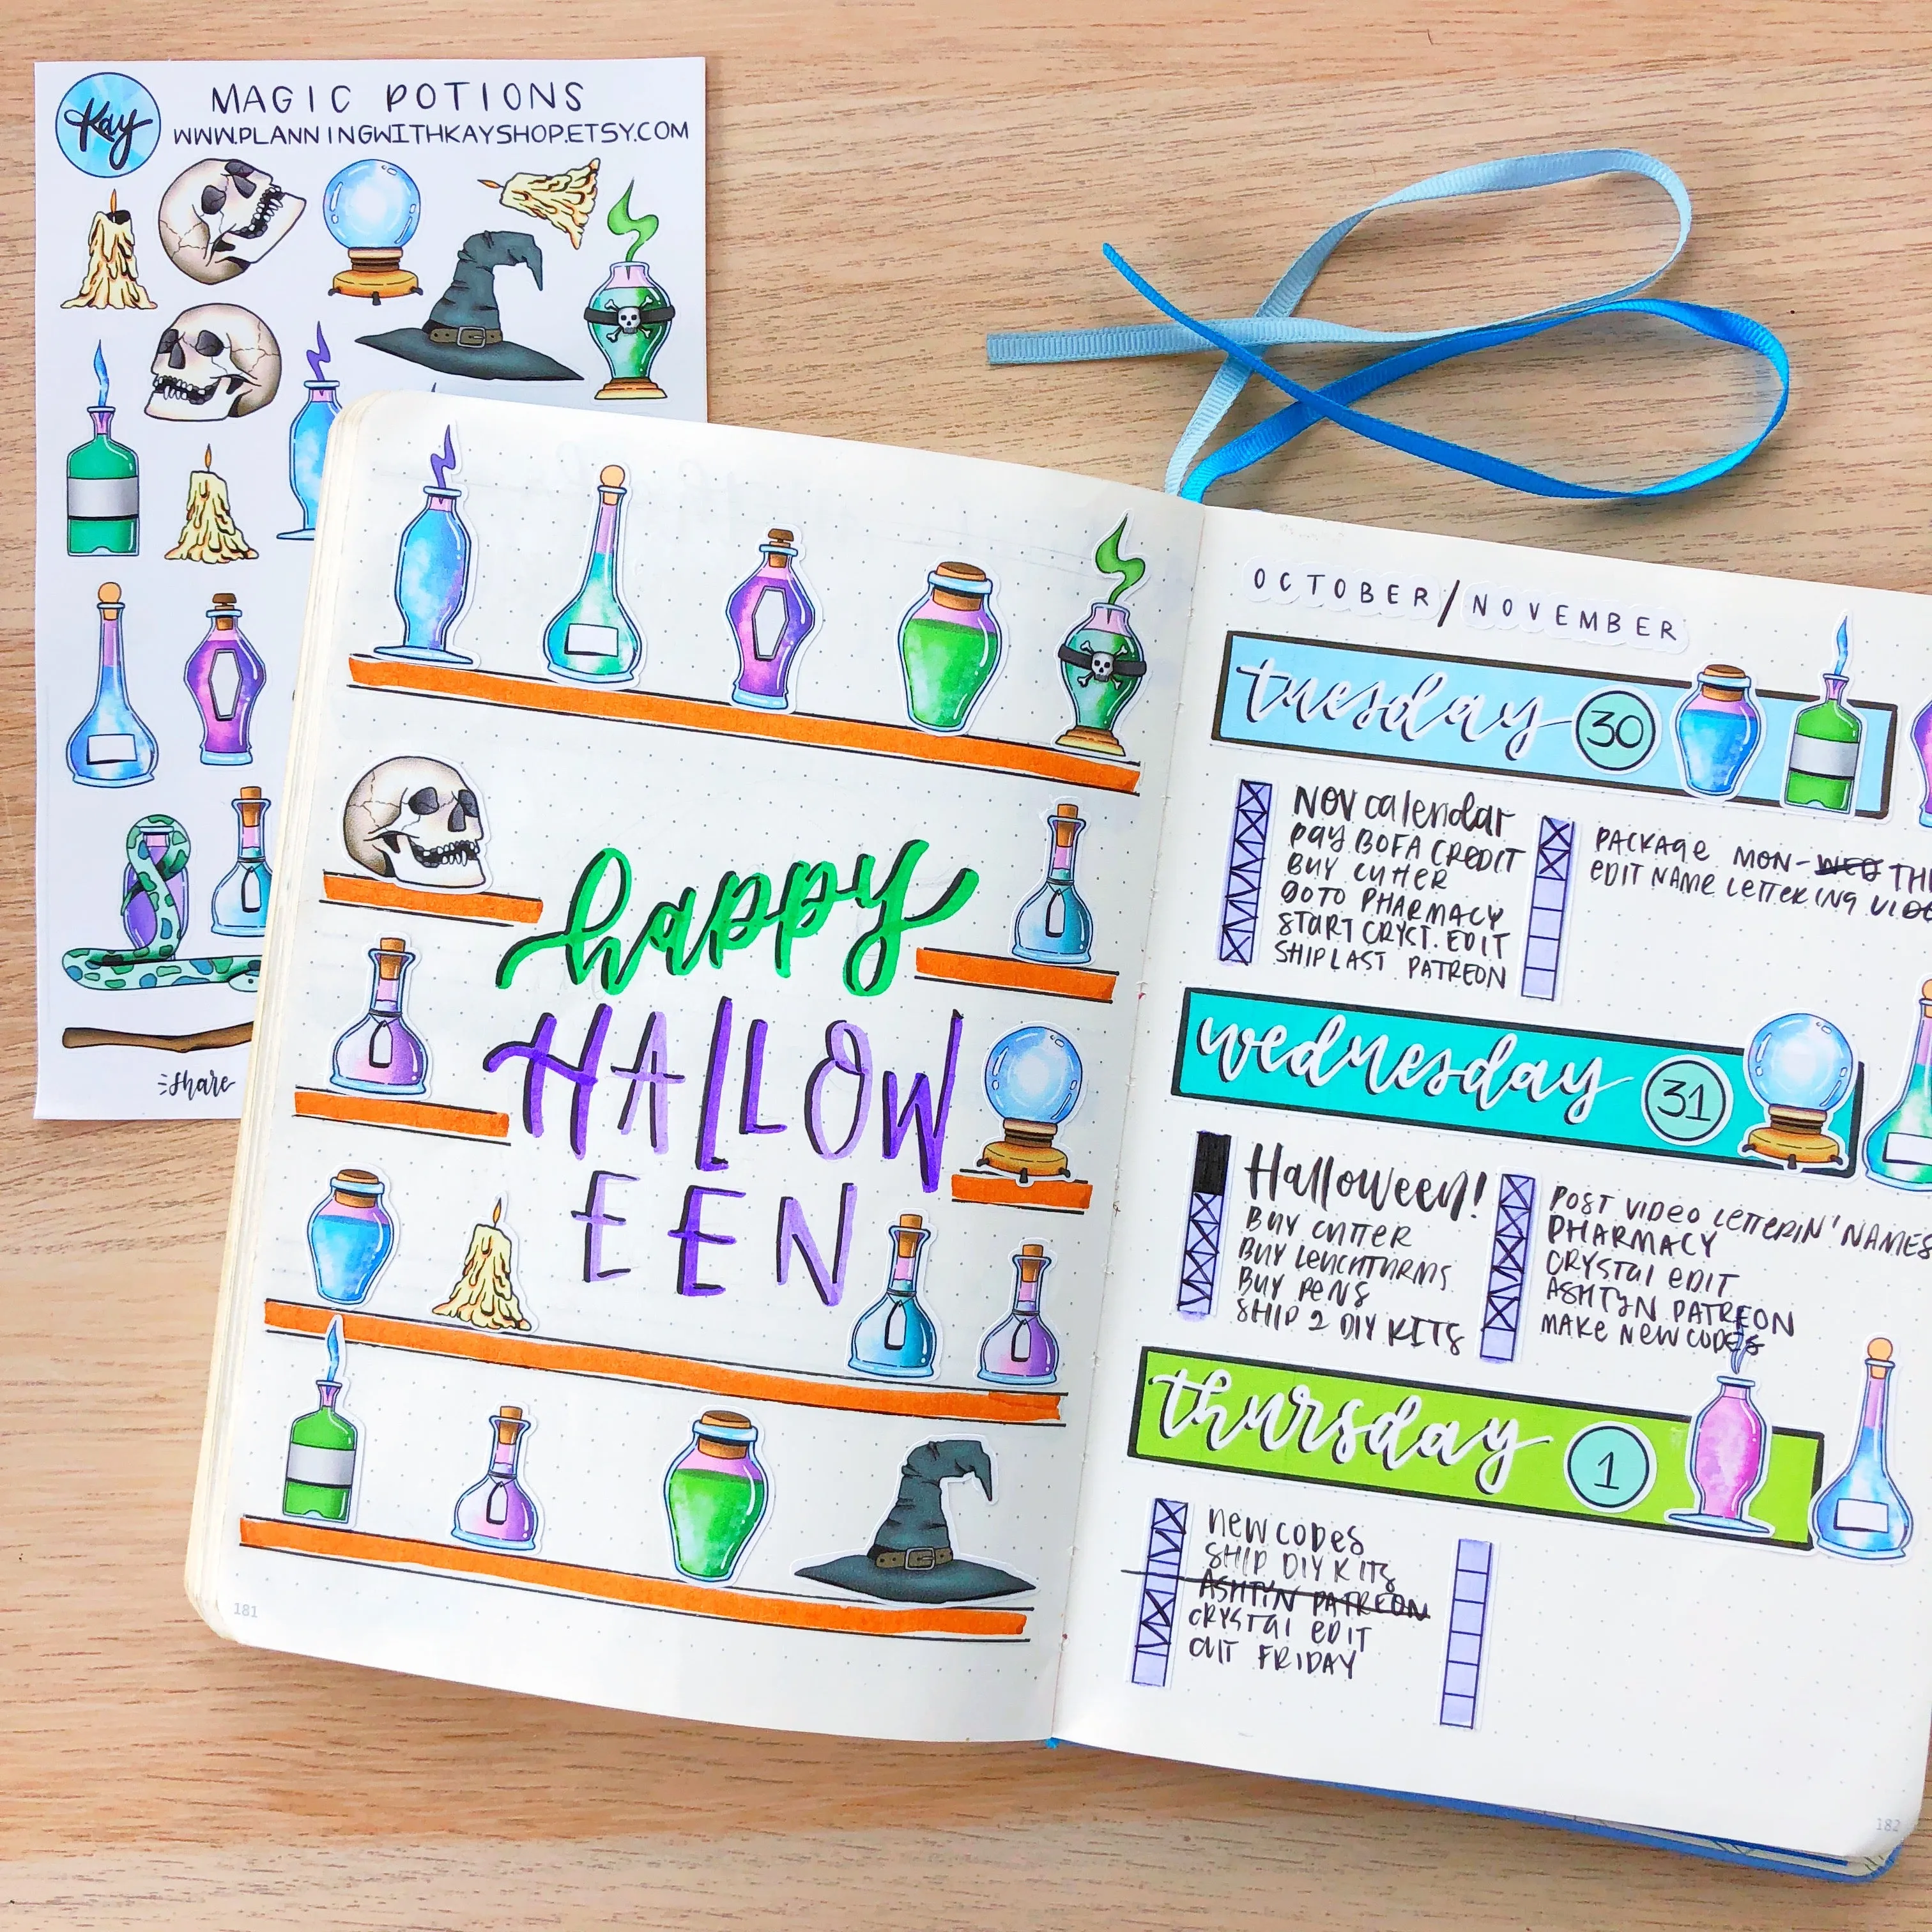 Kay
MAGIC POTIONS
WWW.PLANNINGWITHKAYSHOP.ETSY.COM
share
happy
HALLOW
EEN
181
OCTOBER/NOVEMBER
tuesday 30
NOV calendar
PAY BOFA CREDIT
BUY CUTTER
GOTO PHARMACY
START CRYST. EDIT
SHIP LAST PATREON
PACKAGE MON-WED
EDIT NAME LETTERING
wednesday 31
Halloween!
BUY CUTTER
BUY LEUCHTTURMS
BUY PENS
SHIP 2 DIY KITS
POST VIDEO LETTERIN' NAMES
PHARMACY
CRYSTAL EDIT
ASHTYN PATREON
MAKE NEW CODES
thursday 1
NEW CODES
SHIP DIY KITS
ASHTYN PATREON
CRYSTAL EDIT
OUT FRIDAY
182